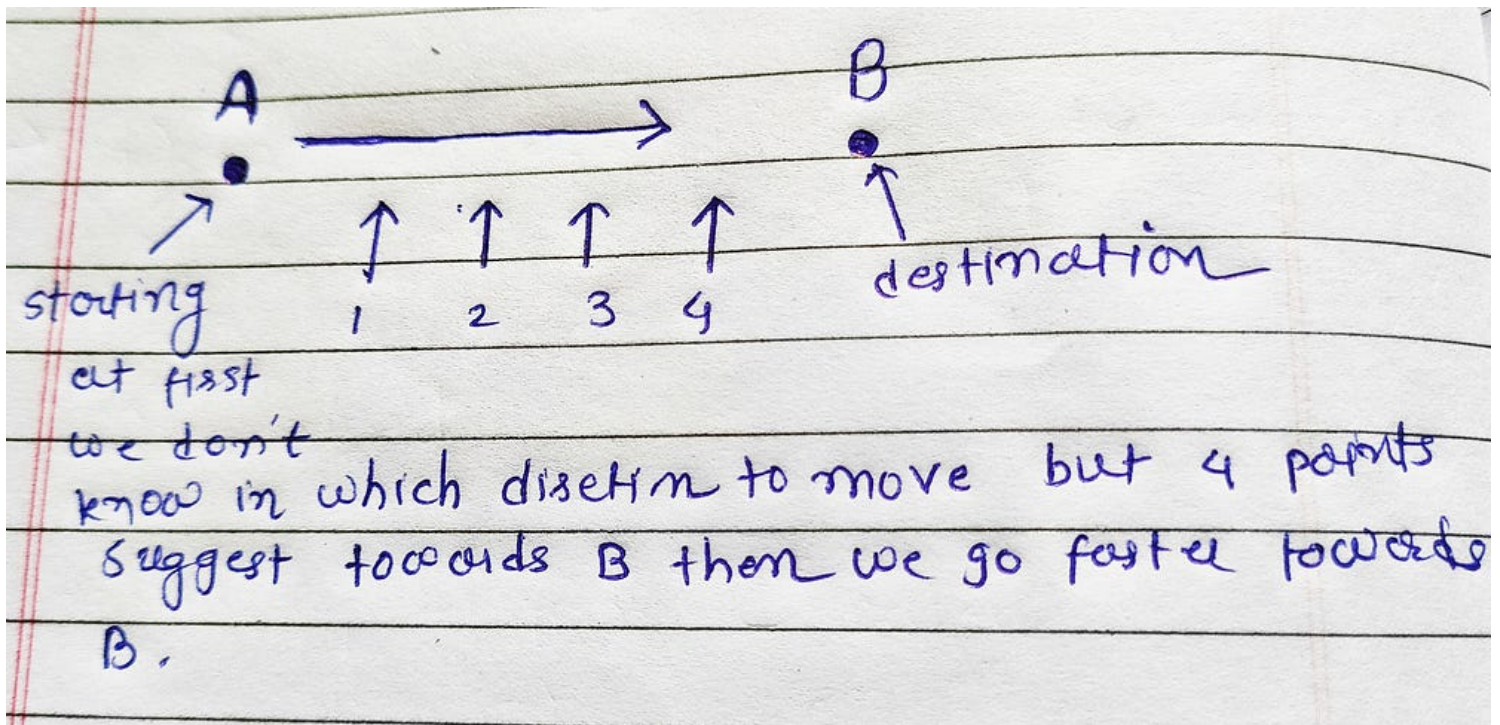 A B
starting 1 2 3 4 destination
at first
we don't
know in which disetim to move but 4 points
suggest towards B then we go faster towards
B.